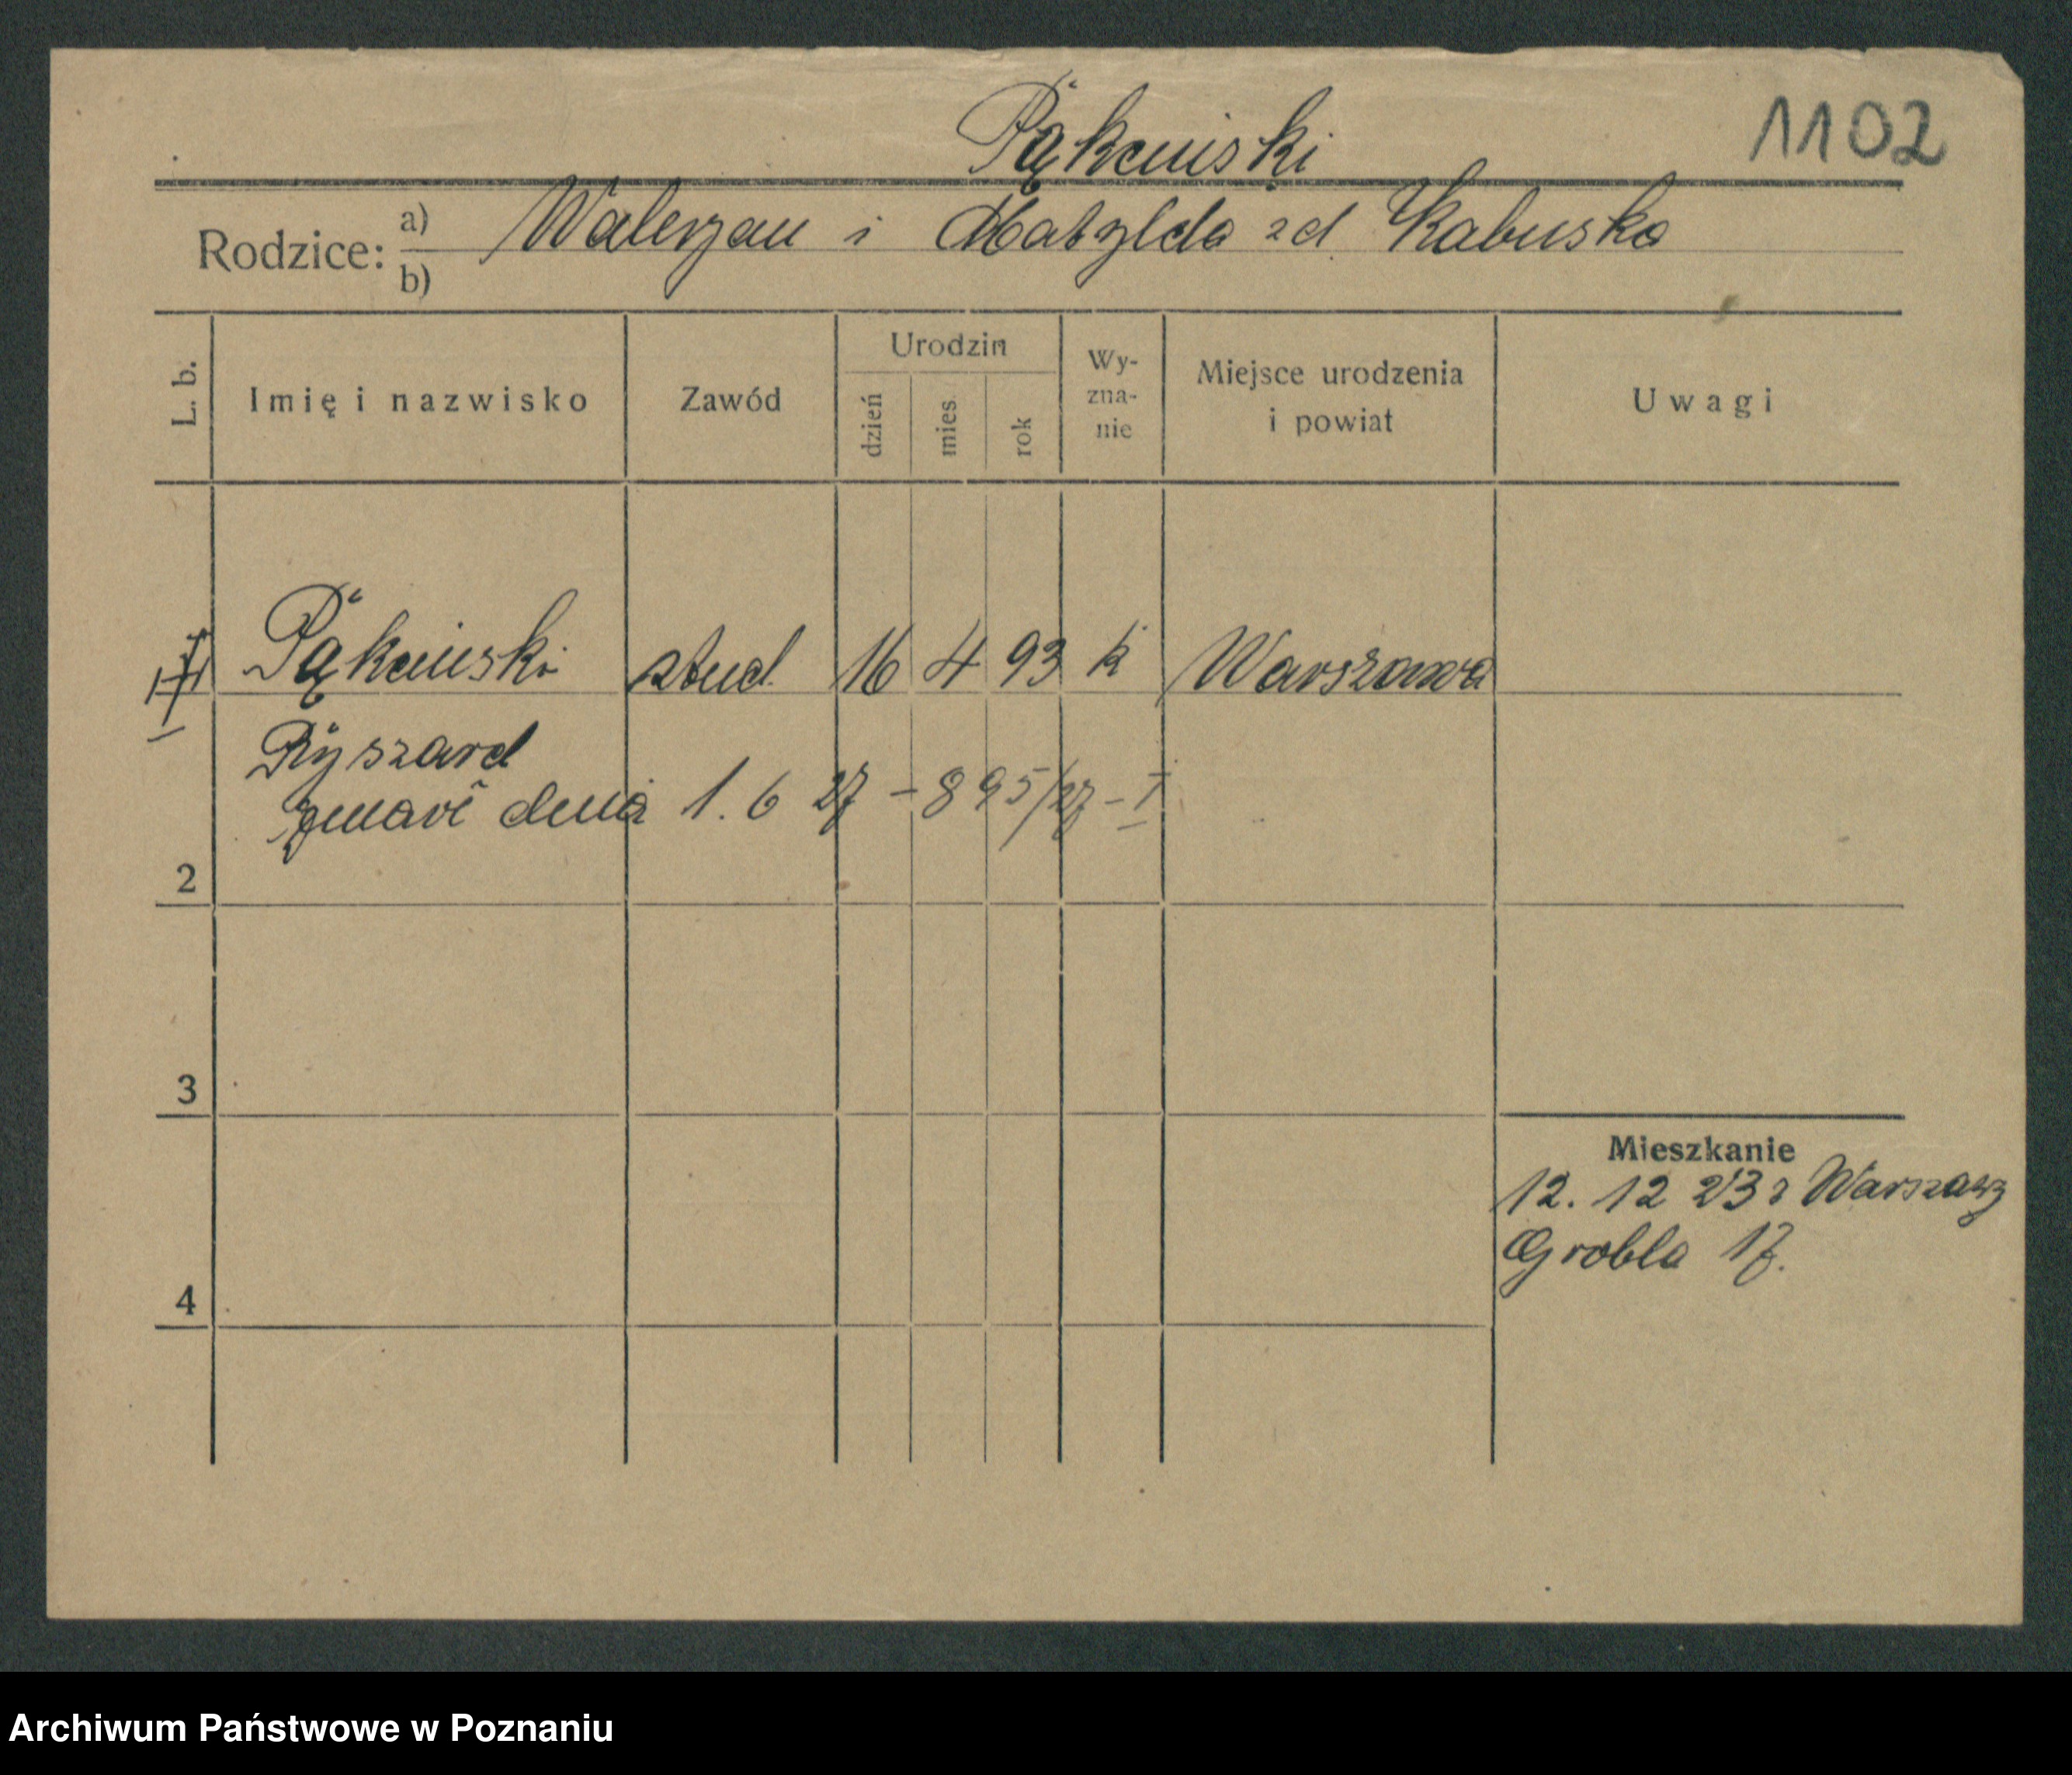 Pąkciński
1102
Rodzice: a) Waleryan i Matylda zd. Kabuska
b)
L. b.
Imię i nazwisko
Zawód
Urodzin
dzień
mies.
rok
Wy-
zna-
nie
Miejsce urodzenia
i powiat
Uwagi
Pąkciński stud 16 4 93 k Warszawa
Ryszard
zmarł dnia 1. 6 27 – 895/27 – I
2
3
4
Mieszkanie
12. 12 23 z Warszawy
Grobla 17.
Archiwum Państwowe w Poznaniu